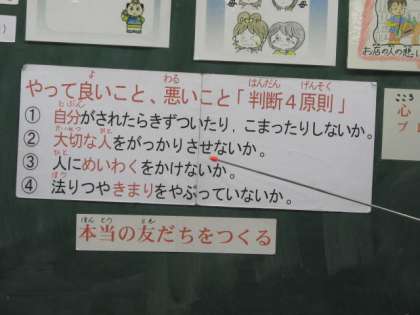 お店の人の悲し
心
プ
やって良いこと、悪いこと「判断4原則」
① 自分がされたらきずついたり，こまったりしないか。
② 大切な人をがっかりさせないか。
③ 人にめいわくをかけないか。
④ 法りつやきまりをやぶっていないか。
本当の友だちをつくる